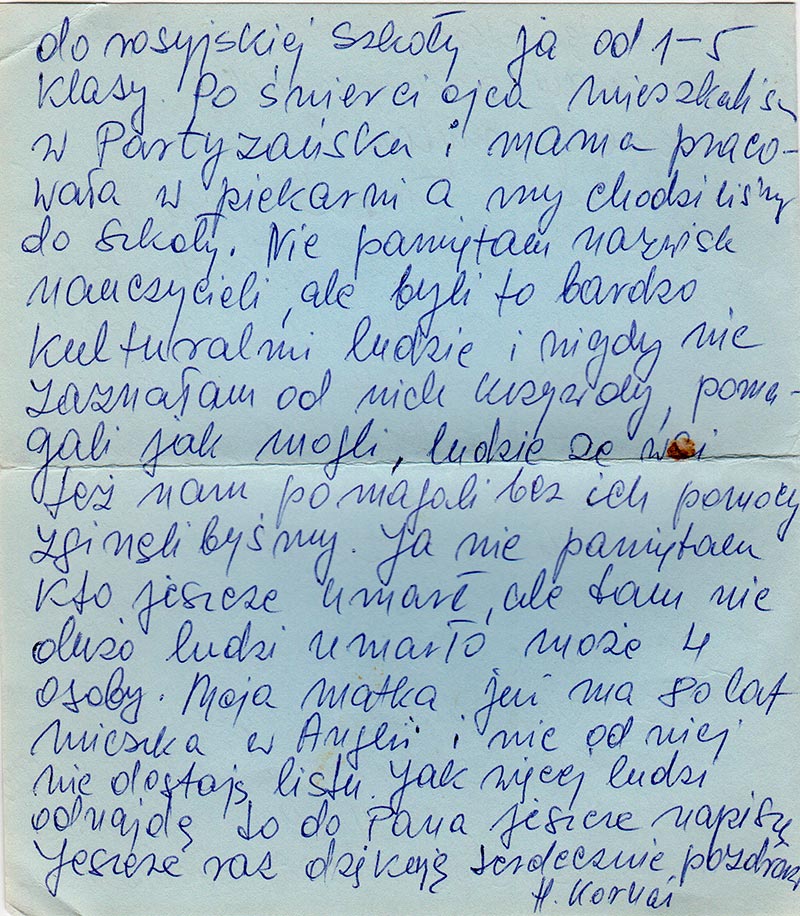 do rosyjskiej szkoły ja od 1-5
klasy. Po śmierci ojca mieszkaliśm
w Partyzańsku i mama praco-
wała w piekarni a my chodziliśmy
do szkoły. Nie pamiętam nazwisk
nauczycieli, ale byli to bardzo
kulturalni ludzie i nigdy nie
zaznałam od nich krzywdy, poma-
gali jak mogli, ludzie ze wsi
też nam pomagali bez ich pomocy
zginęli byśmy. Ja nie pamiętam
kto jeszcze umarł, ale tam nie
dużo ludzi umarło może 4
osoby. Moja matka już ma 80 lat
mieszka w Anglii i nie od niej
nie dostaję listu. Jak więcej ludzi
odnajdę to do Pana jeszcze napiszę
Jeszcze raz dziękuję serdecznie, pozdraw
H.